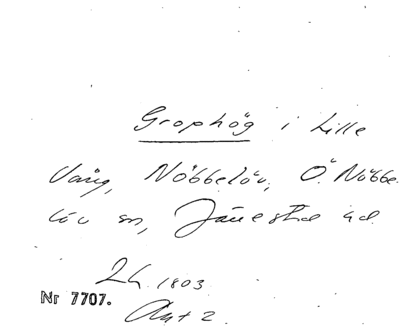 Grophög i Lille
Vång, Nöbbelöv, Ö. Nöbbe
löv sn, Järrestad hd.
24 1803
Nr 7707.
Akt 2